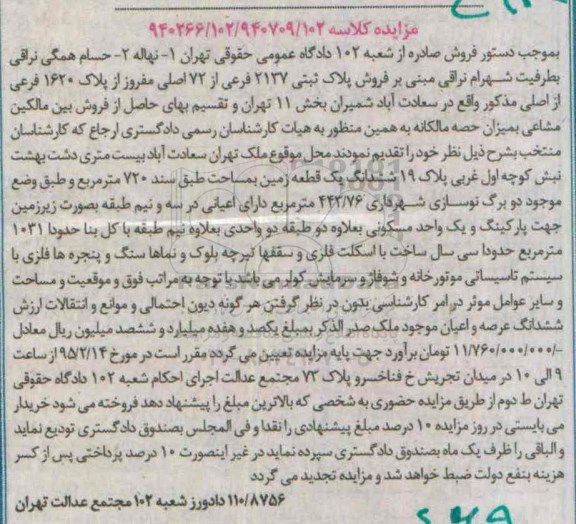 مزایده کلاسه ۹۴۰۲۶۶/۱۰۲/۹۴۰۷۰۹/۱۰۲
بموجب دستور فروش صادره از شعبه ۱۰۲ دادگاه عمومی حقوقی تهران ۱- نهاله ۲- حسام همگی نراقی
بطرفیت شهرام نراقی مبنی بر فروش پلاک ثبتی ۲۱۳۷ فرعی از ۷۲ اصلی مفروز از پلاک ۱۶۲۰ فرعی
از اصلی مذکور واقع در سعادت آباد شمیران بخش ۱۱ تهران و تقسیم بهای حاصل از فروش بین مالکین
مشاعی بمیزان حصه مالکانه به همین منظور به هیات کارشناسان رسمی دادگستری ارجاع که کارشناسان
منتخب بشرح ذیل نظر خود را تقدیم نمودند محل موقوع ملک تهران سعادت آباد بیست متری دشت بهشت
نبش کوچه اول غربی پلاک ۱۹ ششدانگ یک قطعه زمین بمساحت طبق سند ۷۲۰ مترمربع و طبق وضع
موجود دو برگ نوسازی شهرداری ۴۴۲/۷۶ مترمربع دارای اعیانی در سه و نیم طبقه بصورت زیرزمین
جهت پارکینگ و یک واحد مسکونی بعلاوه دو طبقه دو واحدی بعلاوه نیم طبقه با کل بنا حدودا ۱۰۳۱
مترمربع حدودا سی سال ساخت با اسکلت فلزی و سقفها تیرچه بلوک و نماها سنگ و پنجره ها فلزی با
سیستم تاسیساتی موتورخانه و شوفاژ و سرمایش کولر می باشد با توجه به مراتب فوق و موقعیت و مساحت
و سایر عوامل موثر در امر کارشناسی بدون در نظر گرفتن هر گونه دیون احتمالی و موانع و انتقالات ارزش
ششدانگ عرصه و اعیان موجود ملک صدر الذکر بمبلغ یکصد و هفده میلیارد و ششصد میلیون ریال معادل
۱۱/۷۶۰/۰۰۰/۰۰۰/- تومان برآورد جهت پایه مزایده تعیین می گردد مقرر است در مورخ ۹۵/۲/۱۴ از ساعت
۹ الی ۱۰ در میدان تجریش خ فناخسرو پلاک ۷۳ مجتمع عدالت اجرای احکام شعبه ۱۰۲ دادگاه حقوقی
تهران ط دوم از طریق مزایده حضوری به شخصی که بالاترین مبلغ را پیشنهاد دهد فروخته می شود خریدار
می بایستی در روز مزایده ۱۰ درصد مبلغ پیشنهادی را نقدا و فی المجلس بصندوق دادگستری تودیع نماید
و الباقی را ظرف یک ماه بصندوق دادگستری سپرده نماید در غیر اینصورت ۱۰ درصد پرداختی پس از کسر
هزینه بنفع دولت ضبط خواهد شد و مزایده تجدید می گردد
۱۱۰/۸۷۵۶ دادورز شعبه ۱۰۲ مجتمع عدالت تهران